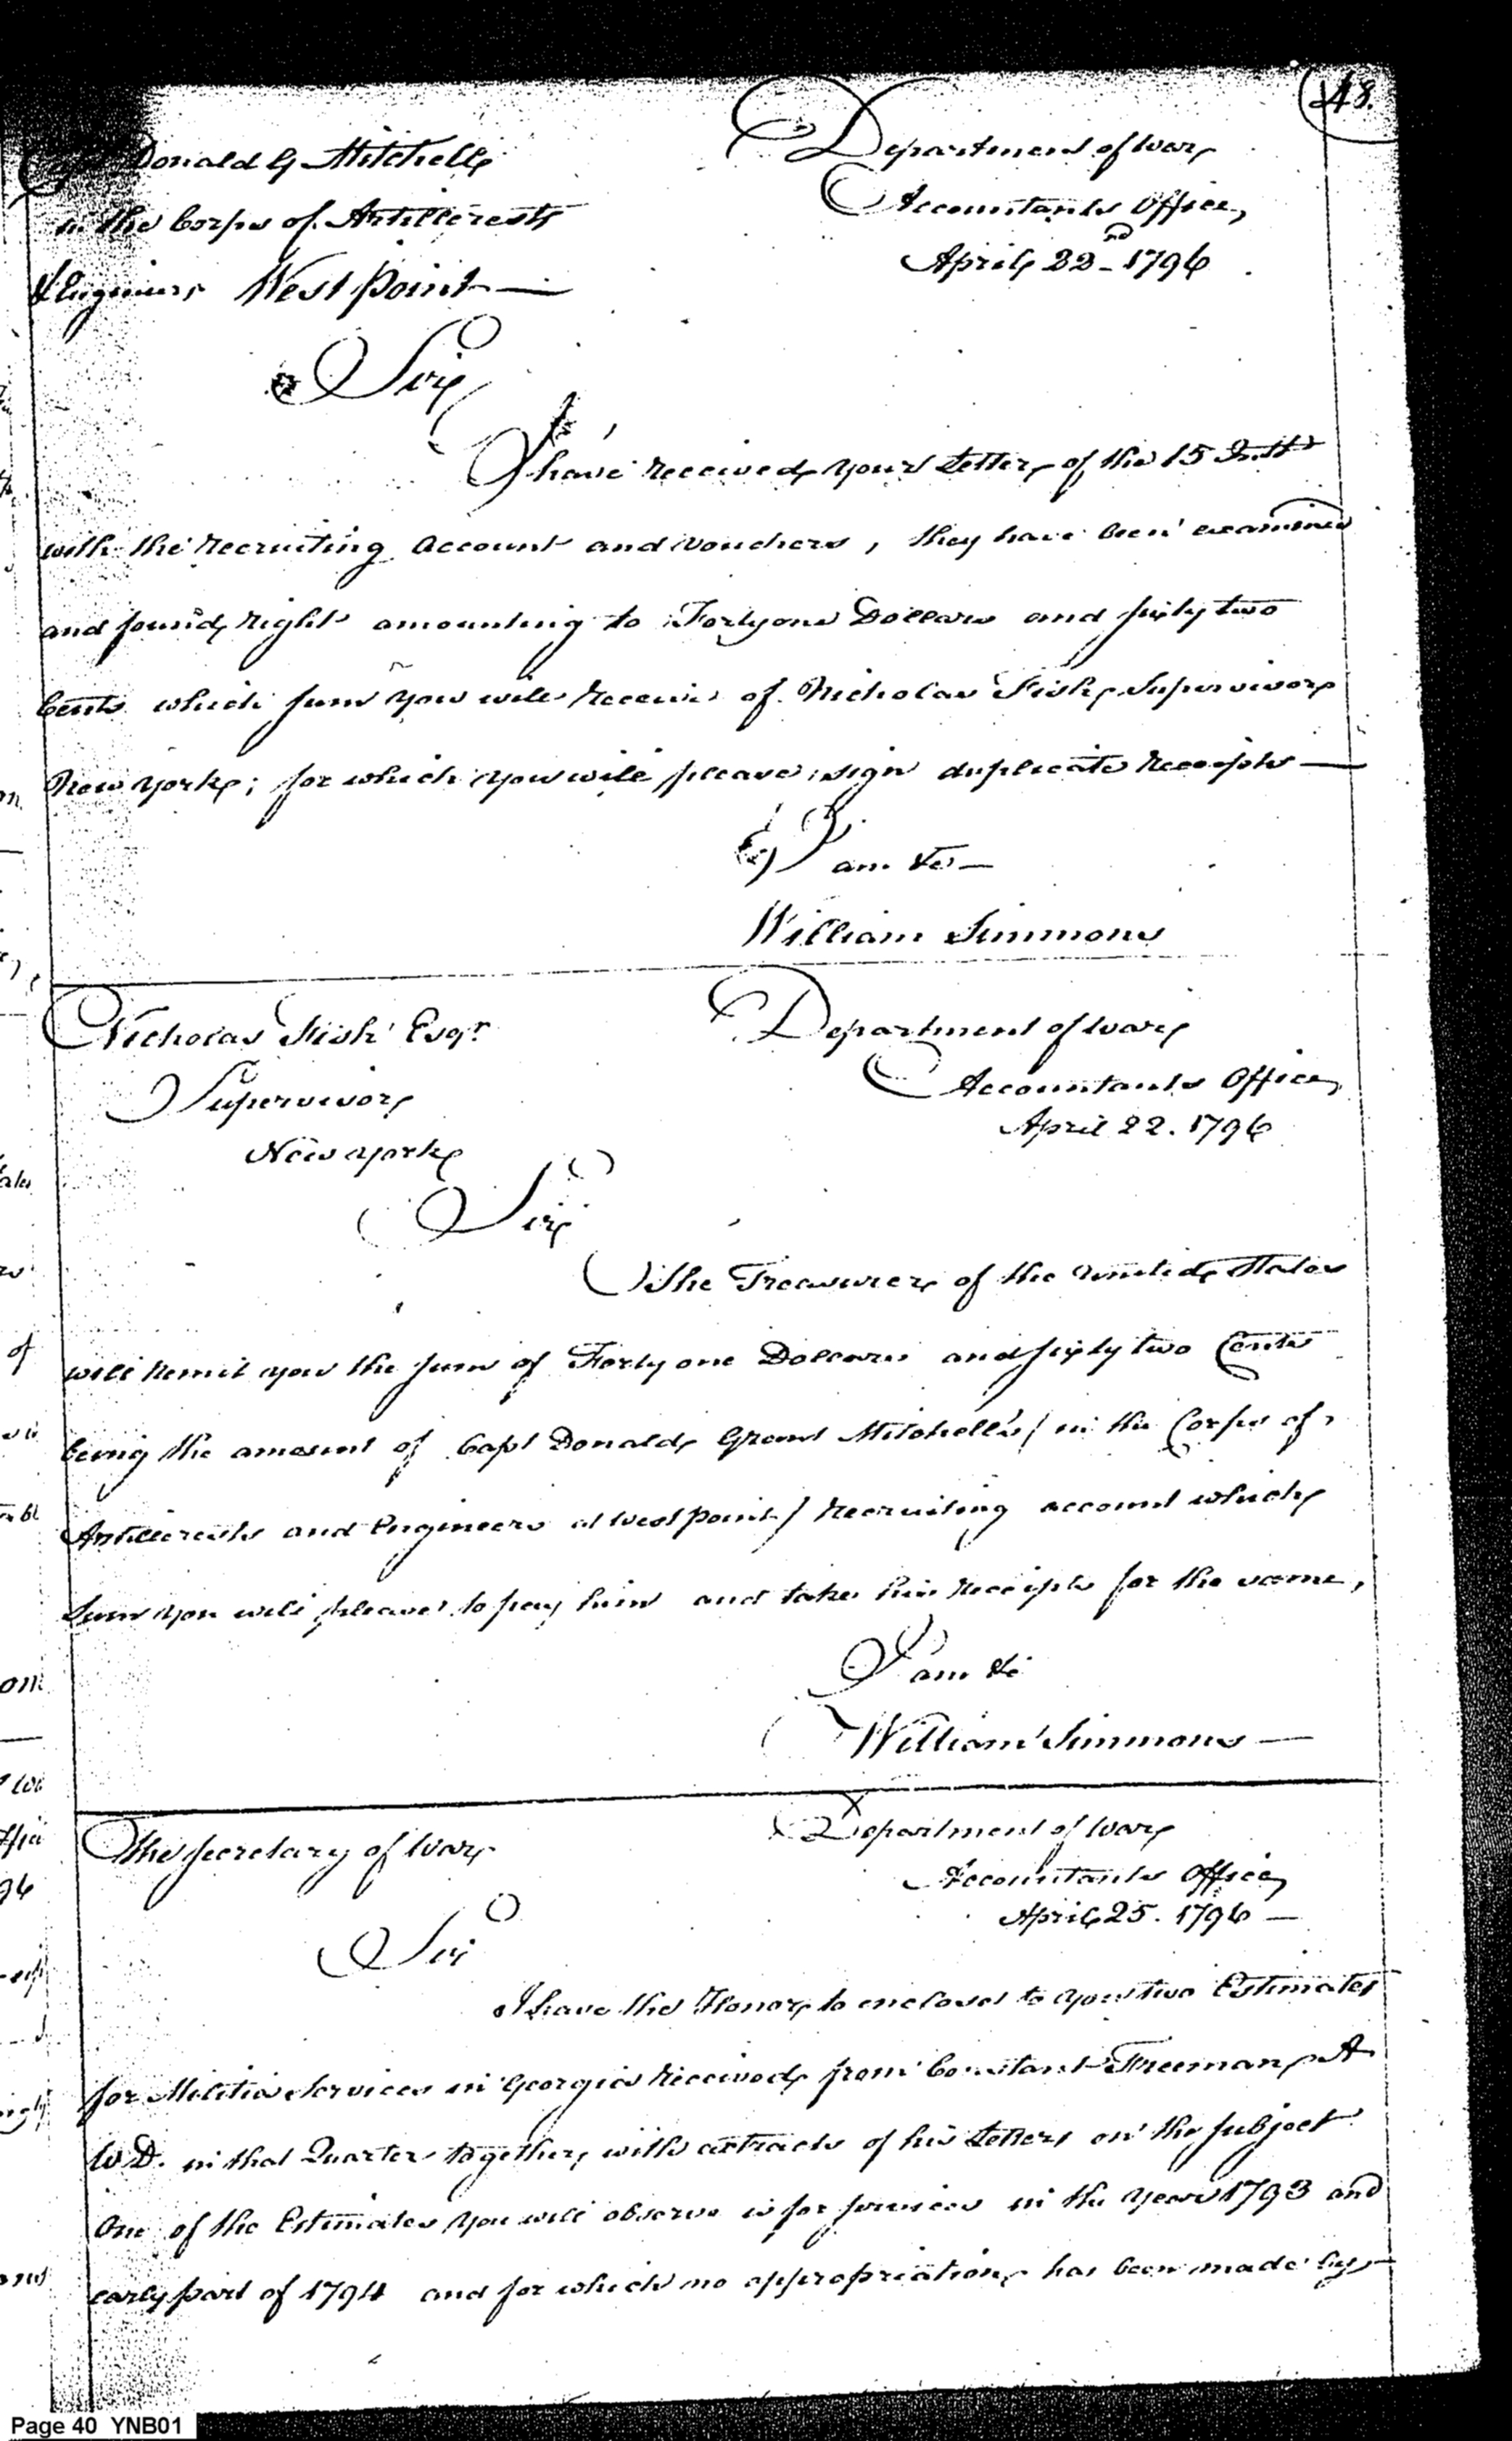 48.
Donald G Mitchell
in the Corps of Artillerests
& Engineers West point —
Department of War
Accountants Office,
April 22nd 1796
Sir
I have received your Letter of the 15 Instt
with the recruiting account and vouchers, they have been examined
and found right amounting to Fortyone Dollars and sixty two
Cents which sum you will receive of Nicholas Fish Supervisor
New york; for which you will please sign duplicate receipts —
I am &c —
William Simmons
Nicholas Fish Esqr
Supervisor
New york
Department of War
Accountants Office,
April 22. 1796
Sir
The Treasurer of the United States
will remit you the sum of Forty one Dollars and sixty two Cents
being the amount of Capt Donald Grant Mitchell's / in the Corps of
Artillerests and Engineers at West point / recruiting account which
Sum you will please to pay him and take his receipts for the same,
I am &c
William Simmons —
The Secretary of War
Department of War
Accountants Office,
April 25. 1796 —
Sir
I have the Honor to enclose to you two Estimates
for Militia Services in Georgia received from Constant Freeman A
W.D. in that Quarter together with extracts of his Letters on the subject
One of the Estimates you will observe is for services in the year 1793 and
early part of 1794 and for which no appropriation has been made by
Page 40 YNB01